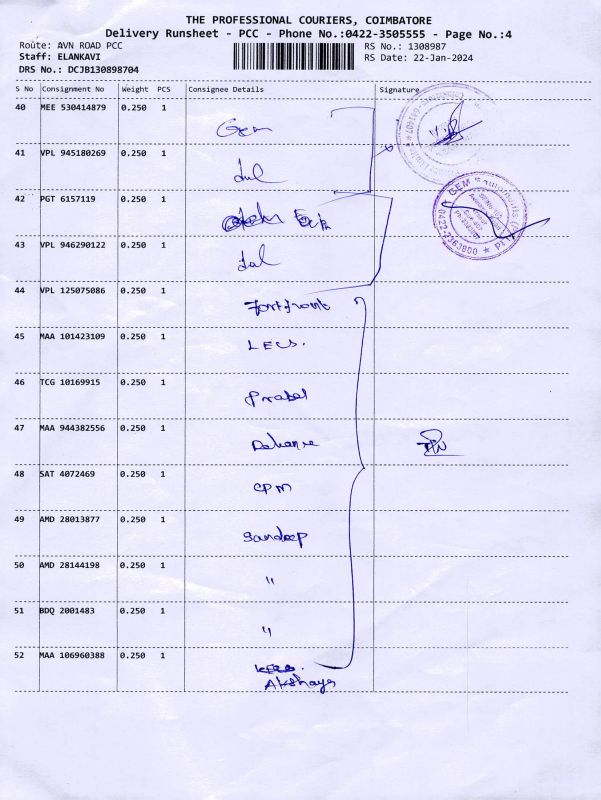 THE PROFESSIONAL COURIERS, COIMBATORE
Delivery Runsheet - PCC - Phone No.:0422-3505555 - Page No.:4
Route: AVN ROAD PCC
RS No.: 1308987
Staff: ELANKAVI
RS Date: 22-Jan-2024
DRS No.: DCJB130898704
S No Consignment No Weight PCS Consignee Details Signature
40 MEE 530414879 0.250 1 Gem
41 VPL 945180269 0.250 1
42 PGT 6157119 0.250 1
43 VPL 946290122 0.250 1
44 VPL 125075086 0.250 1
45 MAA 101423109 0.250 1
46 TCG 10169915 0.250 1
47 MAA 944382556 0.250 1
48 SAT 4072469 0.250 1 CPM
49 AMD 28013877 0.250 1 Sandeep
50 AMD 28144198 0.250 1 "
51 BDQ 2001483 0.250 1 "
52 MAA 106960388 0.250 1
Akshaya
GEM
0422-2363800